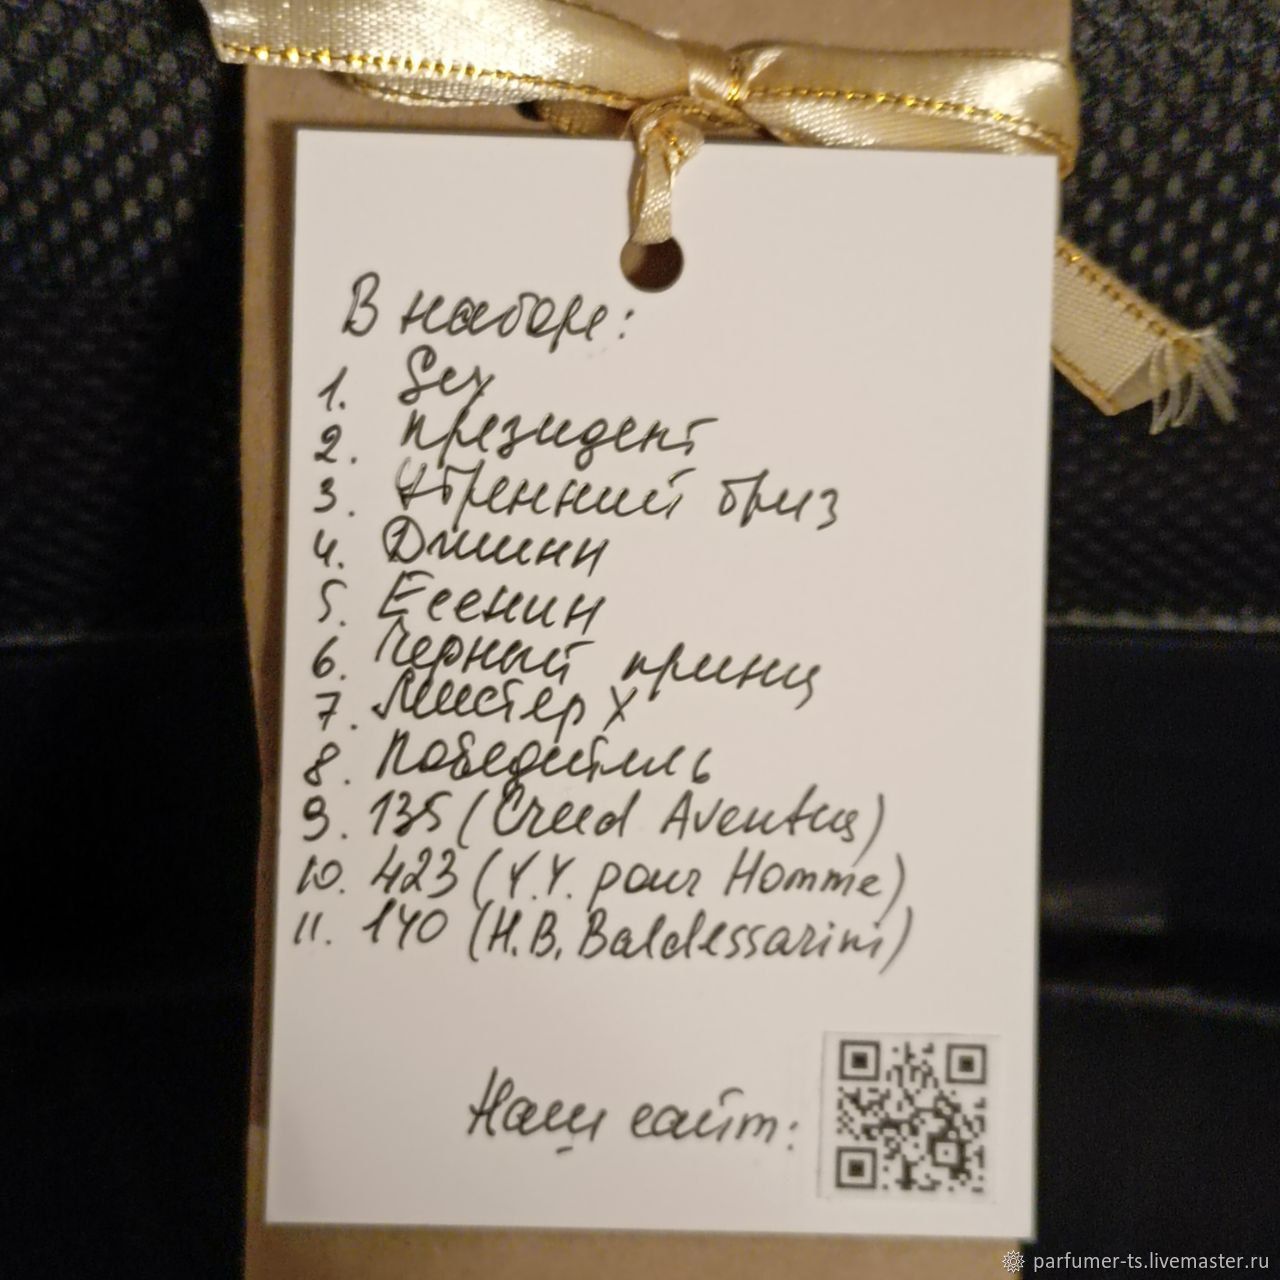 В наборе:
1. Sex
2. Президент
3. Утренний бриз
4. Джинн
5. Есенин
6. Черный принц
7. Мистер X
8. Победитель
9. 135 (Creed Aventus)
10. 423 (Y.Y. pour Homme)
11. 140 (H.B. Baldessarini)
Наш сайт:
parfumer-ts.livemaster.ru